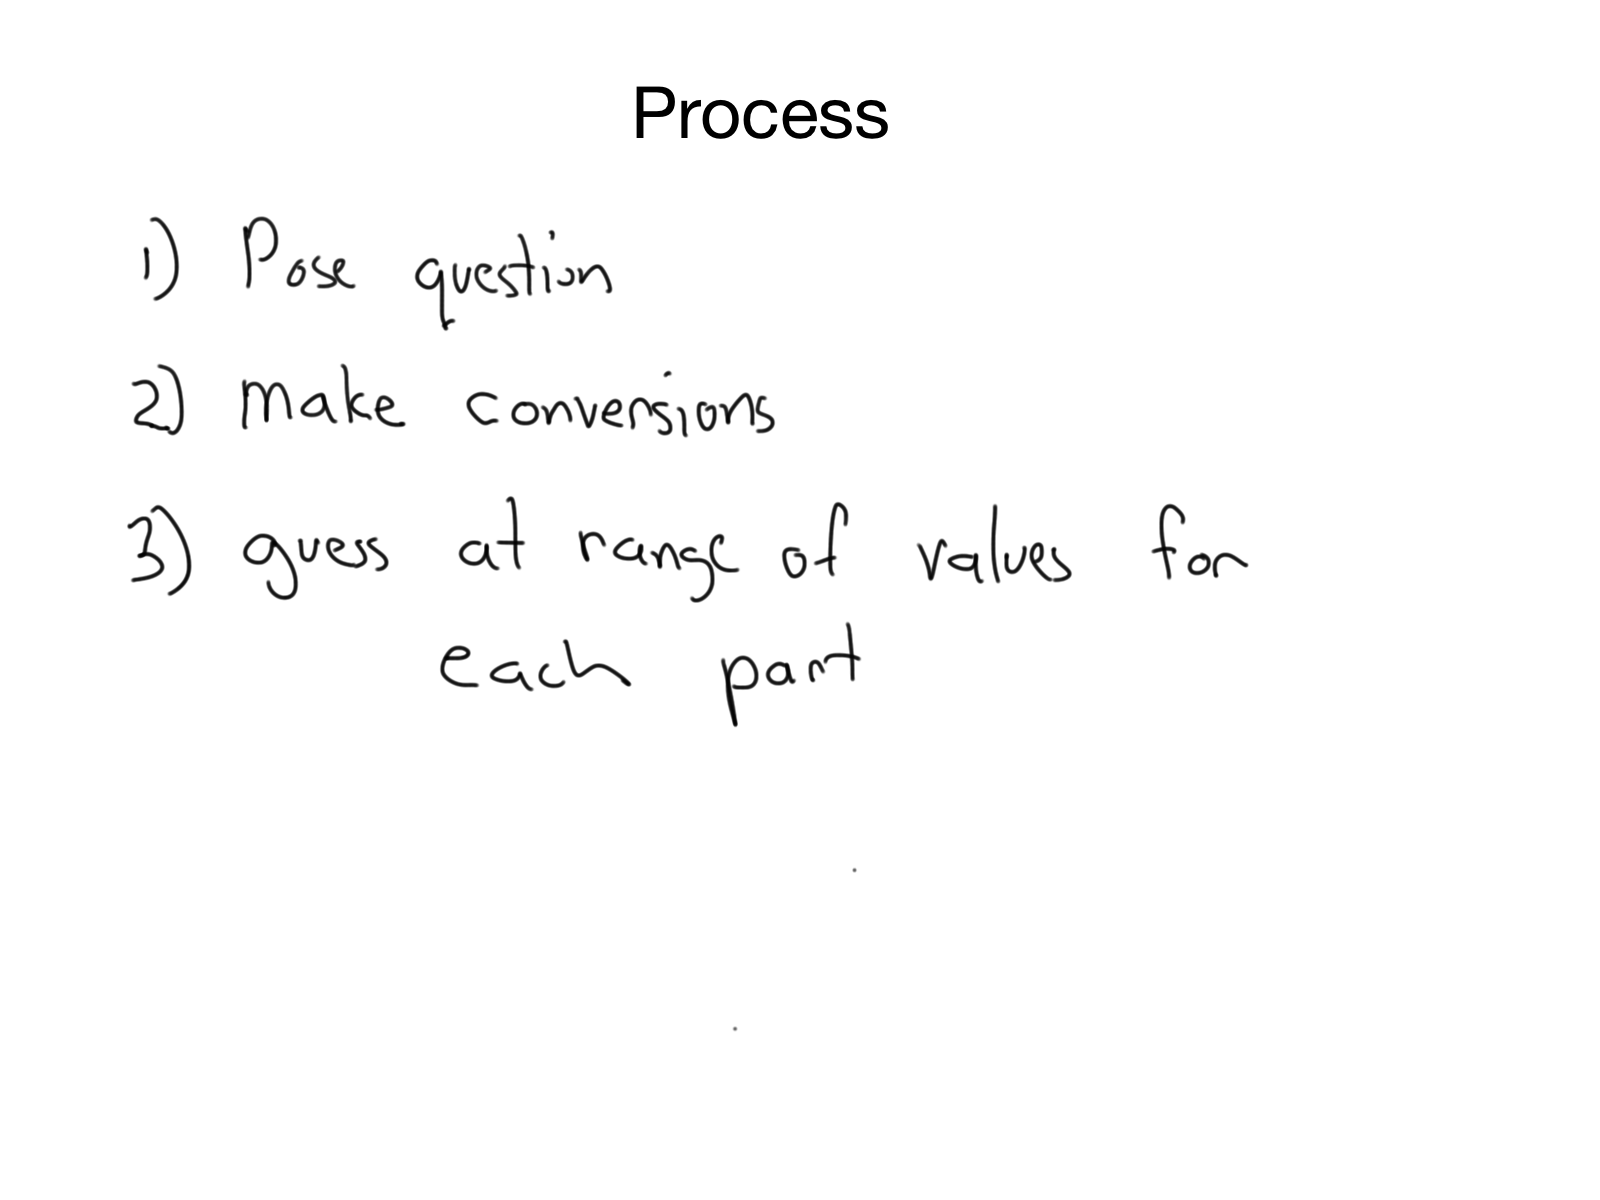 Process
1) Pose question
2) Make conversions
3) guess at range of values for
each part